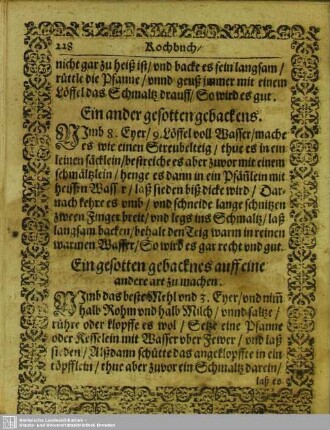 228 Kochbuch/
nicht gar zu heiß ist/ vnd backe es fein langsam/
rüttle die Pfanne/ vnnd geuß immer mit einem
Löffel das Schmaltz drauff/ So wird es gut.
Ein ander gesotten gebackens.
NImb 8. Eyer/ 9. Löffel voll Wasser/ mache
es wie einen Streubelteig/ thue es in ein
leinen säcklein/ bestreiche es aber zuvor mit einem
schmältzlein/ henge es dann in ein Pfänlein mit
heissem Wass r/ laß sieden biß dicke wird/ Dar-
nach kehre es vmb/ vnd schneide lange schnitzen
zween Finger breit/ vnd legs ins Schmaltz/ laß
langsam backen/ behalt den Teig warm in reinen
warmen Wasser/ So wird es gar recht vnd gut.
Ein gesotten gebacknes auff eine
andere art zu machen.
NImb das beste Mehl vnd 3. Eyer/ vnd nim̃
halb Rohm vnd halb Milch/ vnnd saltze/
rühre oder klopffe es wol/ Setze eine Pfanne
oder Kesselein mit Wasser vber Fewer/ vnd laß
si den/ Alßdann schütte das angeklopffte in ein
töpfflein/ thue aber zuvor ein Schmaltz darein/
laß es